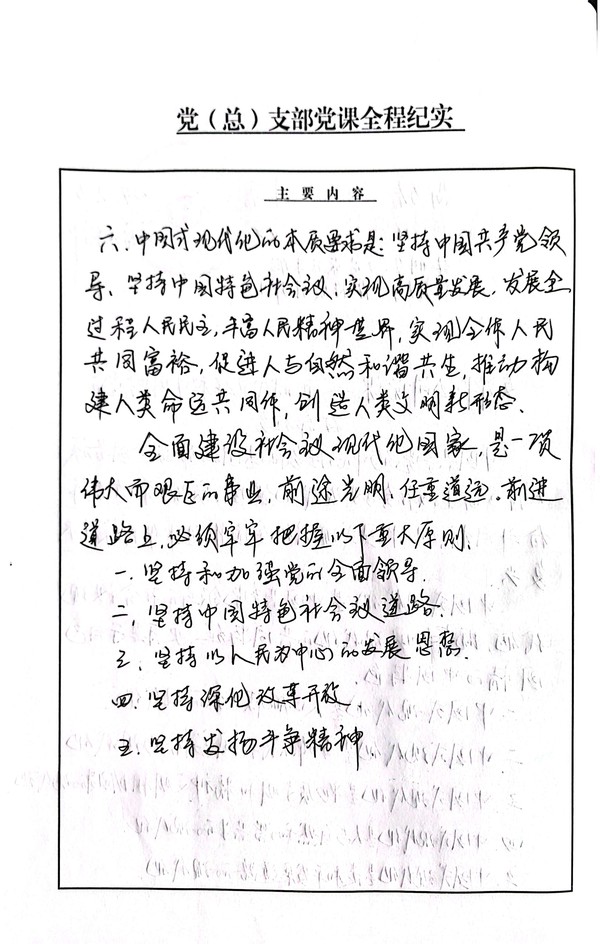 党（总）支部党课全程纪实
主要内容
六、中国式现代化的本质要求是：坚持中国共产党领
导、坚持中国特色社会主义，实现高质量发展，发展全
过程人民民主，丰富人民精神世界，实现全体人民
共同富裕，促进人与自然和谐共生，推动构
建人类命运共同体，创造人类文明新形态。
全面建设社会主义现代化国家，是一项
伟大而艰巨的事业，前途光明，任重道远。前进
道路上，必须牢牢把握以下重大原则.
一.坚持和加强党的全面领导.
二，坚持中国特色社会主义道路.
三．坚持以人民为中心的发展思想.
四.坚持深化改革开放
五.坚持发扬斗争精神